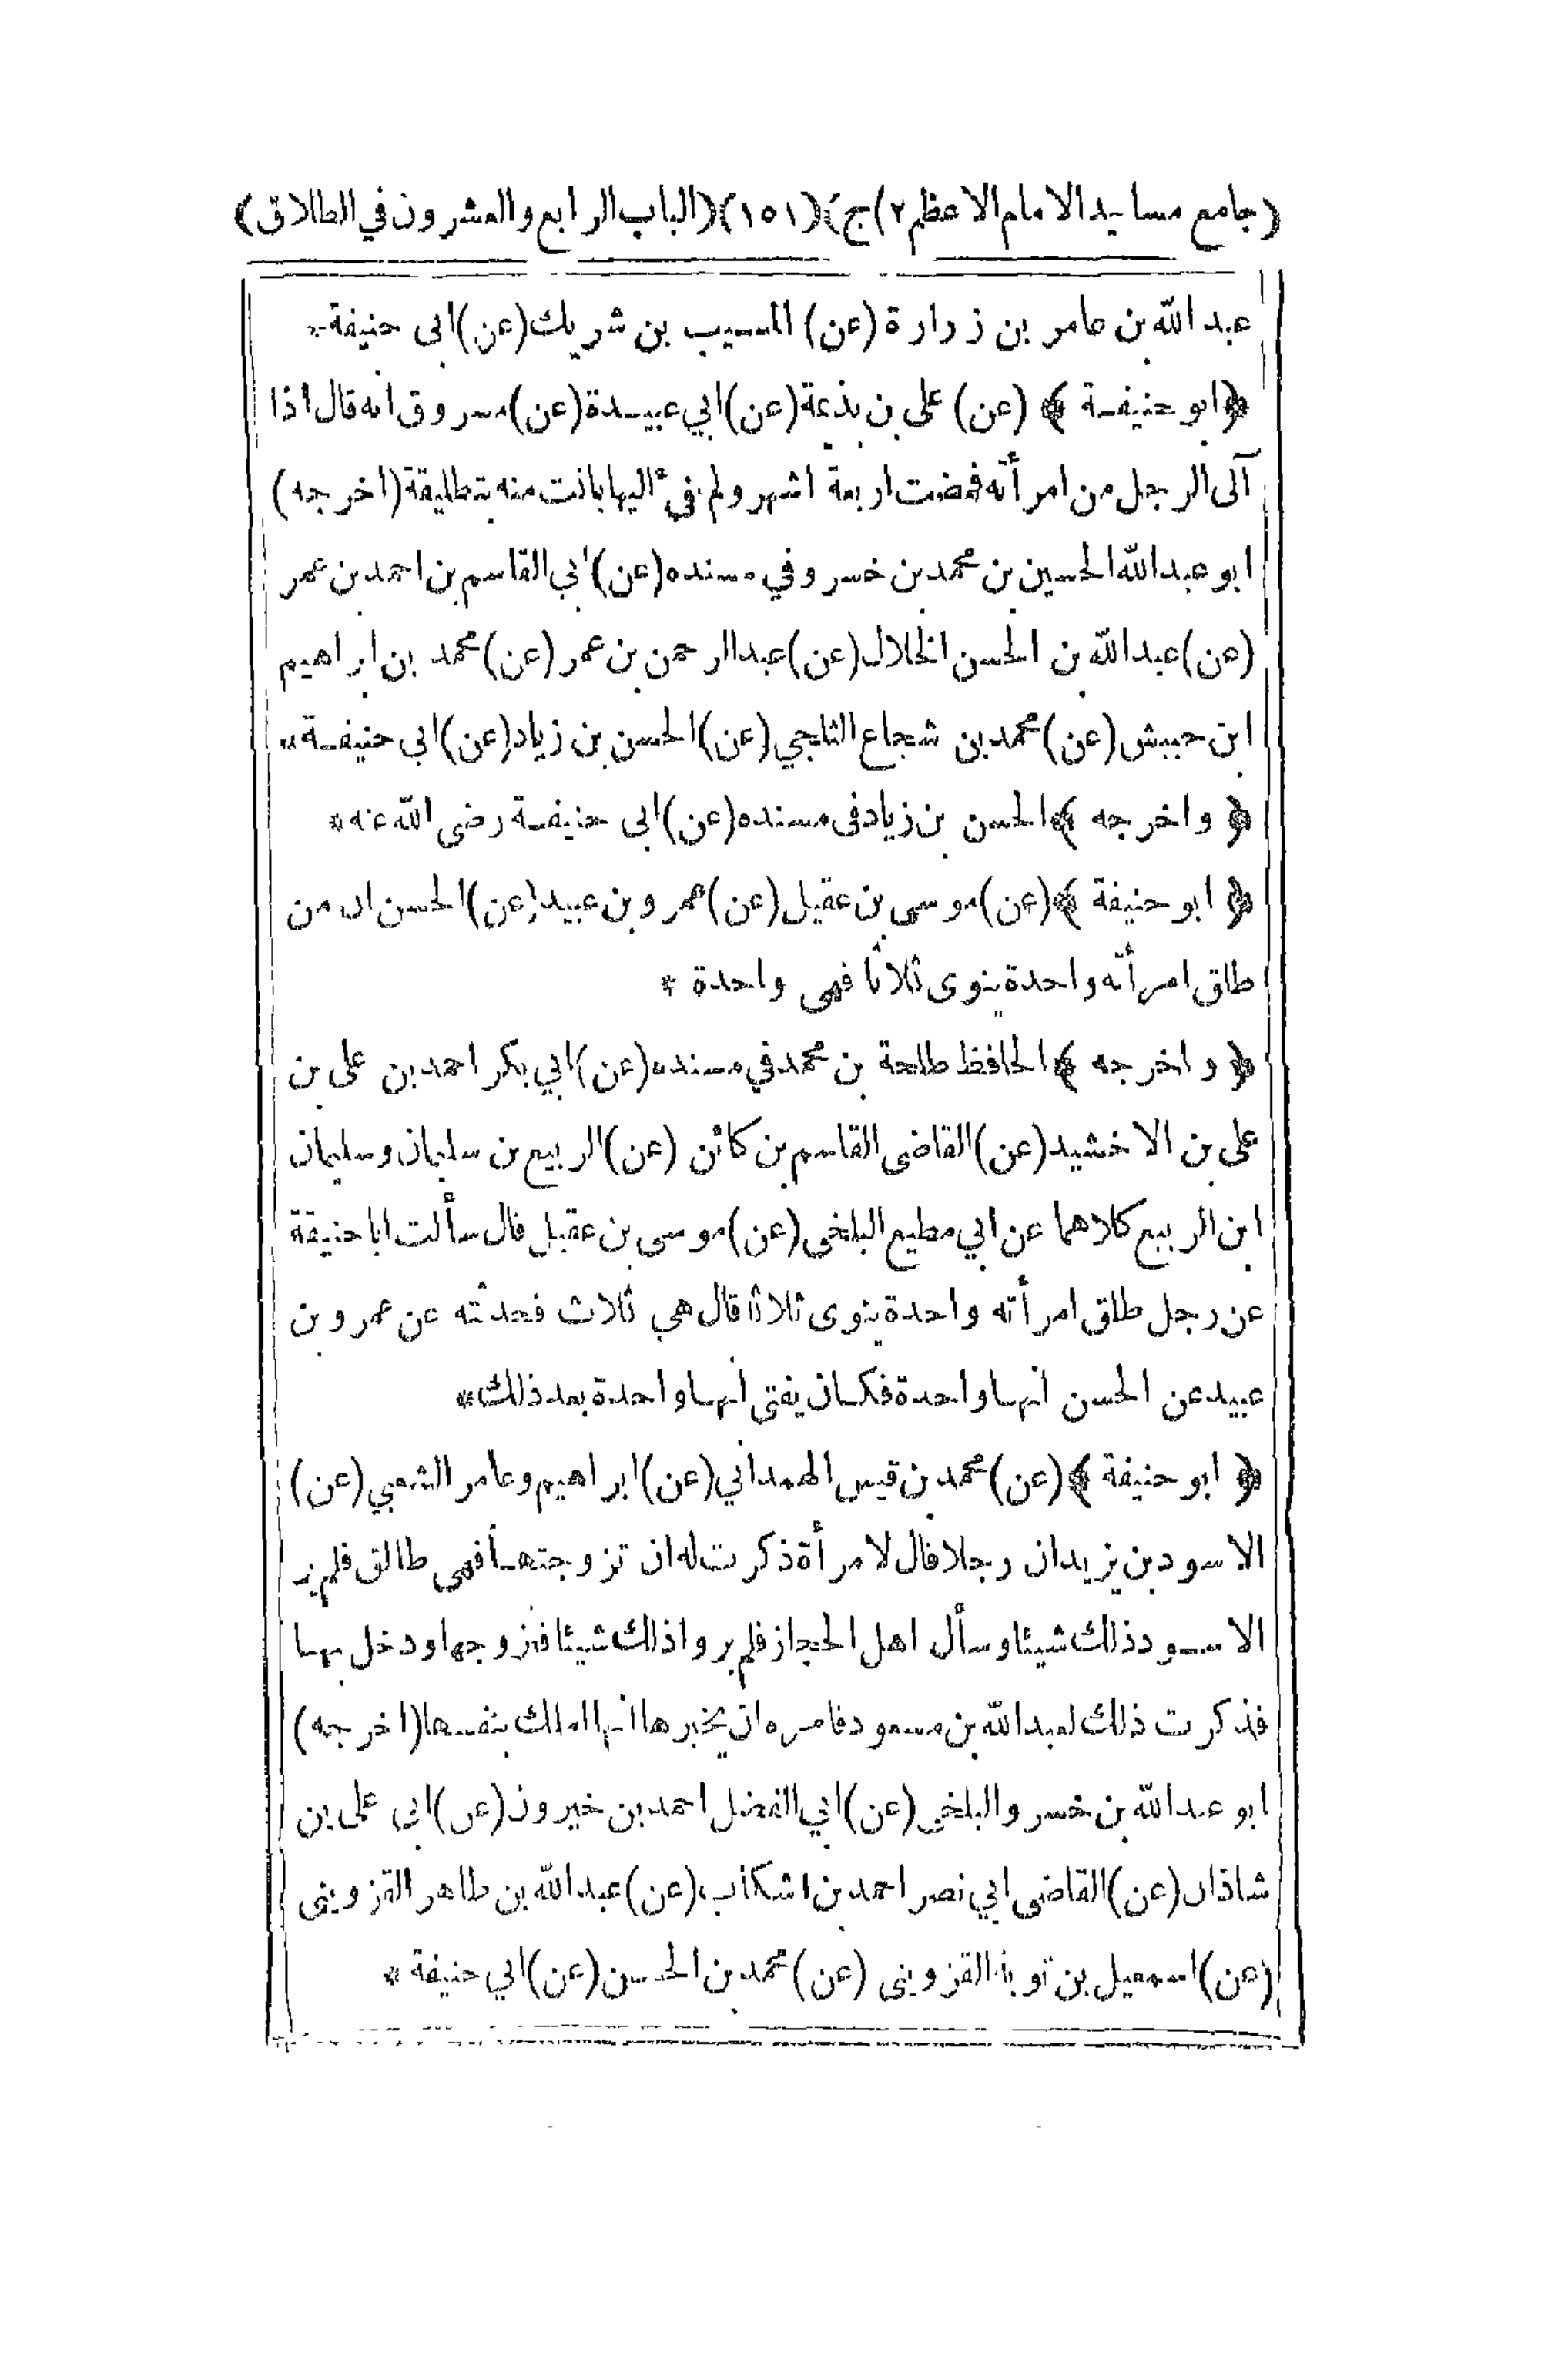 (جامع مسانيد الامام الاعظم ٢) ج) (١٥١) (الباب الرابع والعشرون في الطلاق)
عبد الله بن عامر بن زرارة (عن) المسيب بن شريك (عن) ابى حنيفة *
﴿ ابو حنيفة ﴾ (عن) على بن بذعة (عن) ابي عبيدة (عن) مسروق انه قال اذا
آلى الرجل من امرأته فمضت اربعة اشهر ولم يفئ اليها بانت منه بتطليقة (اخرجه)
ابو عبد الله الحسين بن محمد بن خسرو في مسنده (عن) ابي القاسم بن احمد بن عمر
(عن) عبد الله بن الحسن الخلال (عن) عبد الرحمن بن عمر (عن) محمد بن ابراهيم
ابن حبيش (عن) محمد بن شجاع الثلجي (عن) الحسن بن زياد (عن) ابى حنيفة *
﴿ واخرجه ﴾ الحسن بن زياد فى مسنده (عن) ابى حنيفة رضى الله عنه *
﴿ ابو حنيفة ﴾ (عن) موسى بن عقيل (عن) عمرو بن عبيد (عن) الحسن ان من
طلق امرأته واحدة ينوى ثلاثا فهى واحدة *
﴿ واخرجه ﴾ الحافظ طلحة بن محمد في مسنده (عن) ابي بكر احمد بن على بن
على بن الاخشيد (عن) القاضى القاسم بن كائن (عن) الربيع بن سليمان وسليمان
ابن الربيع كلاهما عن ابي مطيع البلخى (عن) موسى بن عقيل قال سألت ابا حنيفة
عن رجل طلق امرأته واحدة ينوى ثلاثا قال هي ثلاث فحدثته عن عمرو بن
عبيد عن الحسن انها واحدة فكان يفتى انها واحدة بعد ذلك *
﴿ ابو حنيفة ﴾ (عن) محمد بن قيس الهمداني (عن) ابراهيم وعامر الشعبي (عن)
الاسود بن يزيد ان رجلا قال لامرأة ذكرت له ان تزوجتها فهى طالق فلم ير
الاسود ذلك شيئا وسأل اهل الحجاز فلم يروا ذلك شيئا فتزوجها ودخل بها
فذكرت ذلك لعبد الله بن مسعود فامره ان يخبرها انها املك بنفسها (اخرجه)
ابو عبد الله بن خسرو البلخى (عن) ابي الفضل احمد بن خيرون (عن) ابى على بن
شاذان (عن) القاضى ابي نصر احمد بن اشكاب (عن) عبد الله بن طاهر القزوينى
(عن) اسمعيل بن توبة القزوينى (عن) محمد بن الحسن (عن) ابي حنيفة *